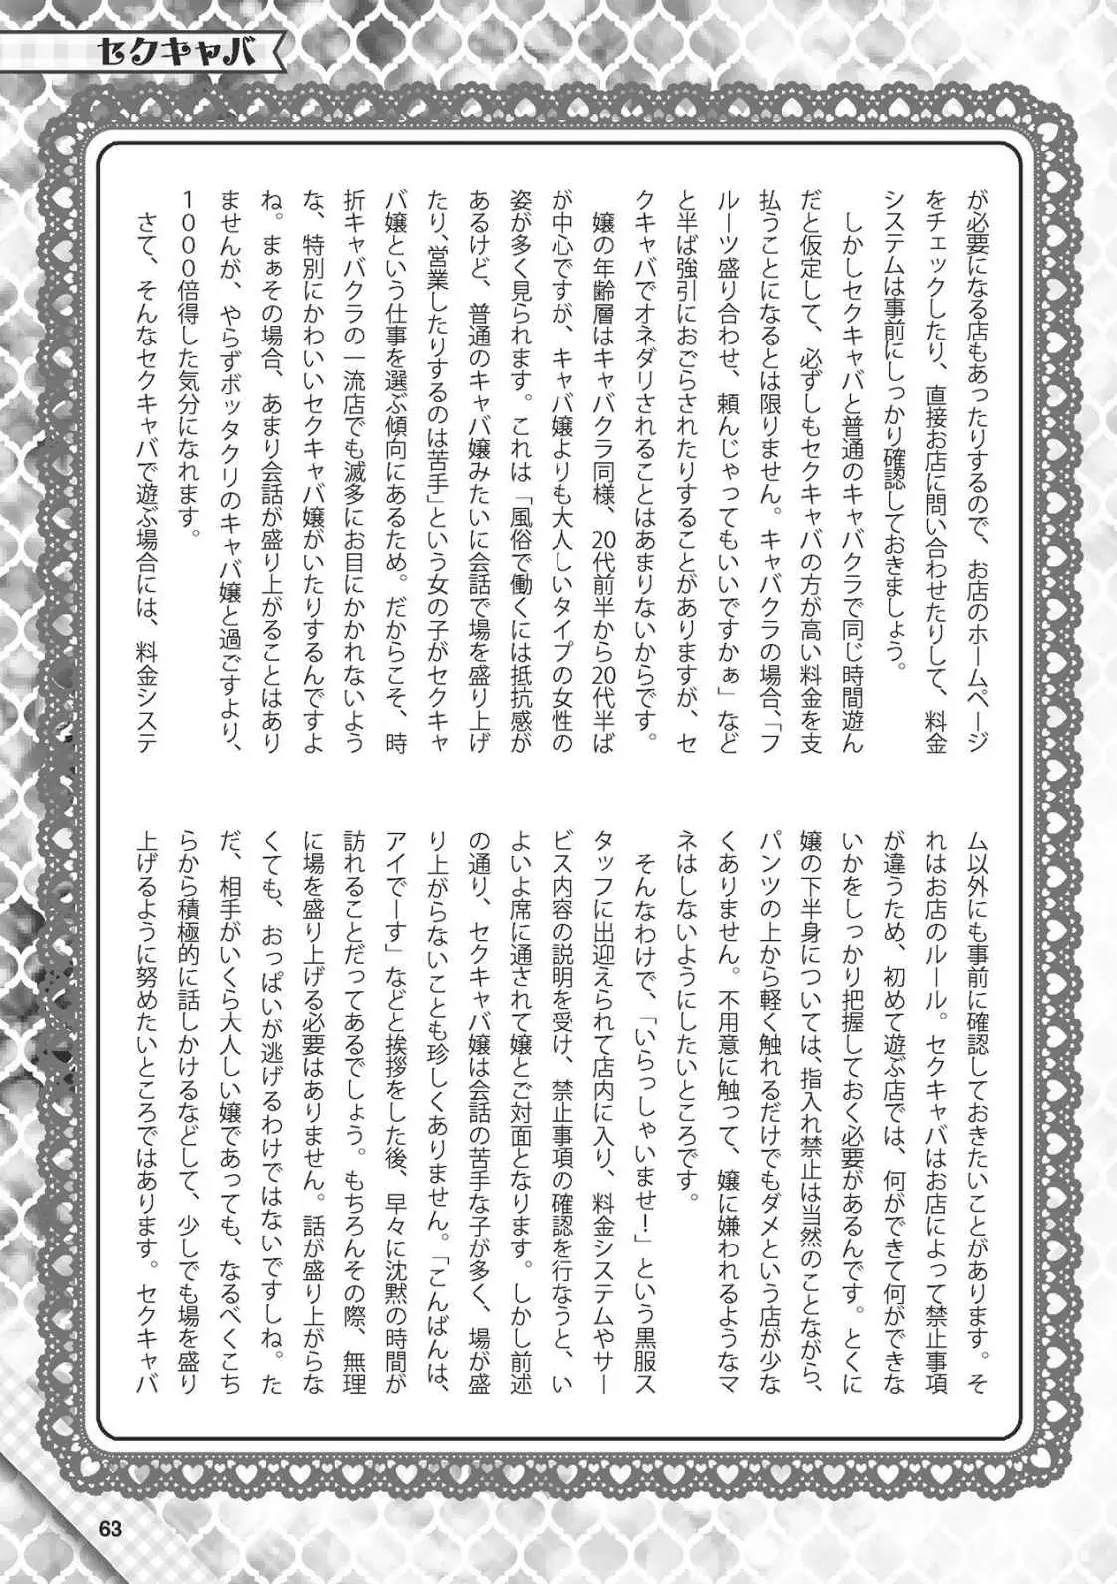 セクキャバ
が必要になる店もあったりするので、お店のホームページ
をチェックしたり、直接お店に問い合わせたりして、料金
システムは事前にしっかり確認しておきましょう。
しかしセクキャバと普通のキャバクラで同じ時間遊ん
だと仮定して、必ずしもセクキャバの方が高い料金を支
払うことになるとは限りません。キャバクラの場合、「フ
ルーツ盛り合わせ、頼んじゃってもいいですかぁ」など
と半ば強引におごらされたりすることがありますが、セ
クキャバでオネダリされることはあまりないからです。
嬢の年齢層はキャバクラ同様、20代前半から20代半ば
が中心ですが、キャバ嬢よりも大人しいタイプの女性の
姿が多く見られます。これは「風俗で働くには抵抗感が
あるけど、普通のキャバ嬢みたいに会話で場を盛り上げ
たり、営業したりするのは苦手」という女の子がセクキャ
バ嬢という仕事を選ぶ傾向にあるため。だからこそ、時
折キャバクラの一流店でも滅多にお目にかかれないよう
な、特別にかわいいセクキャバ嬢がいたりするんですよ
ね。まぁその場合、あまり会話が盛り上がることはあり
ませんが、やらずボッタクリのキャバ嬢と過ごすより、
1000倍得した気分になれます。
さて、そんなセクキャバで遊ぶ場合には、料金システ
ム以外にも事前に確認しておきたいことがあります。そ
れはお店のルール。セクキャバはお店によって禁止事項
が違うため、初めて遊ぶ店では、何ができて何ができな
いかをしっかり把握しておく必要があるんです。とくに
嬢の下半身については、指入れ禁止は当然のことながら、
パンツの上から軽く触れるだけでもダメという店が少な
くありません。不用意に触って、嬢に嫌われるようなマ
ネはしないようにしたいところです。
そんなわけで、「いらっしゃいませ！」という黒服ス
タッフに出迎えられて店内に入り、料金システムやサー
ビス内容の説明を受け、禁止事項の確認を行なうと、い
よいよ席に通されて嬢とご対面となります。しかし前述
の通り、セクキャバ嬢は会話の苦手な子が多く、場が盛
り上がらないことも珍しくありません。「こんばんは、
アイでーす」などと挨拶をした後、早々に沈黙の時間が
訪れることだってあるでしょう。もちろんその際、無理
に場を盛り上げる必要はありません。話が盛り上がらな
くても、おっぱいが逃げるわけではないですしね。た
だ、相手がいくら大人しい嬢であっても、なるべくこち
らから積極的に話しかけるなどして、少しでも場を盛り
上げるように努めたいところではあります。セクキャバ
63